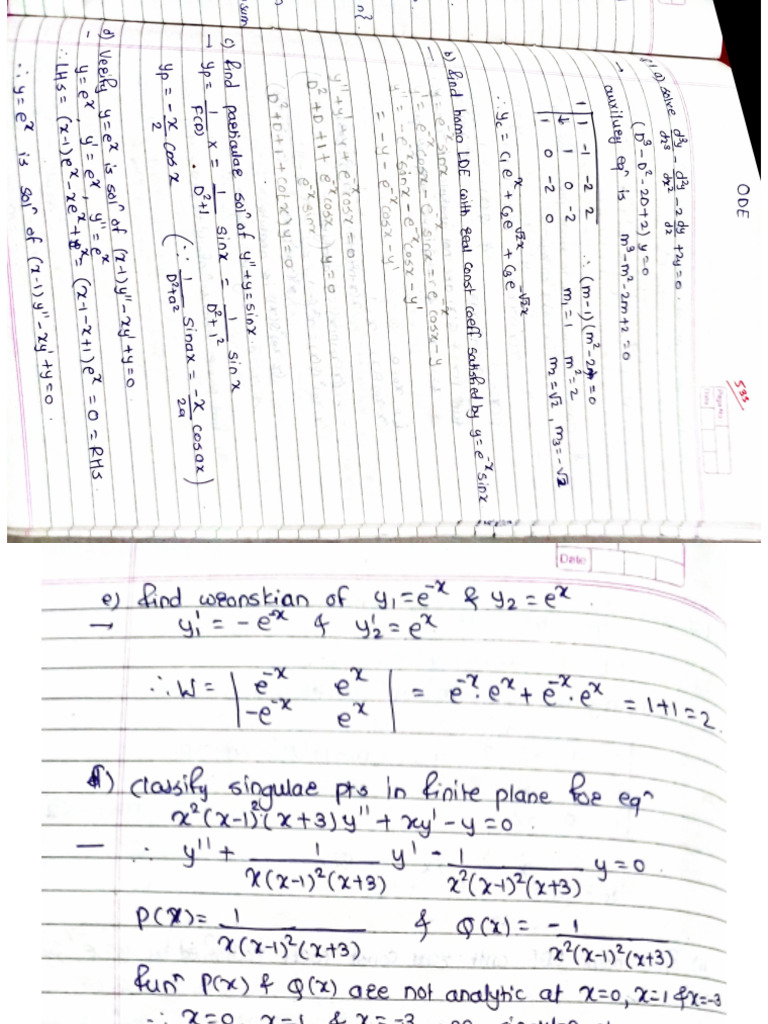 ODE
535
Q1. a) solve d³y/dx³ - d²y/dx² - 2 dy/dx + 2y = 0.
(D³-D²-2D+2) y = 0
→ auxiliary eqⁿ is m³-m²-2m+2=0
1 | 1 -1 -2 2 ∴ (m-1)(m²-2)=0
↓ 1 0 -2 m₁=1 m²=2
1 0 -2 0 m₂=√2, m₃=-√2
∴ yc = c₁eˣ + c₂e^√2x + c₃e^-√2x
b) find homo LDE with real const coeff satisfied by y=e⁻ˣ sinx
— y = e⁻ˣ sinx
y' = e⁻ˣcosx - e⁻ˣ sinx = e⁻ˣ cosx - y
y'' = -e⁻ˣ sinx - e⁻ˣ cosx - y'
= -y - e⁻ˣ cosx - y'
y''+y'+y+e⁻ˣcosx=0
(D²+D+1+ e⁻ˣcosx / e⁻ˣ sinx) y=0
(D²+D+1+cotx) y=0
c) find particular solⁿ of y''+y=sinx.
→ yp = 1/F(D) . x = 1/D²+1 sinx = 1/D²+1² sinx
yp = -x/2 cosx (∵ 1/D²+a² sinax = -x/2a cosax)
d) Verify y=eˣ is solⁿ of (x-1)y''-xy'+y=0
- y=eˣ, y'=eˣ, y''=eˣ
∴ LHS = (x-1)eˣ-xeˣ+eˣ = (x-1-x+1)eˣ = 0 = RHS.
∴ y=eˣ is solⁿ of (x-1)y''-xy'+y=0.
Date
e) find wronskian of y₁=e⁻ˣ & y₂=eˣ.
→ y₁'=-e⁻ˣ & y₂'=eˣ
∴ W = | e⁻ˣ eˣ | = e⁻ˣ.eˣ + e⁻ˣ.eˣ = 1+1=2.
| -e⁻ˣ eˣ |
f) classify singular pts in finite plane for eqⁿ
x²(x-1)²(x+3)y''+xy'-y=0.
— ∴ y''+ 1/x(x-1)²(x+3) y' - 1/x²(x-1)²(x+3) y=0.
P(x)= 1/x(x-1)²(x+3) & Q(x) = -1/x²(x-1)²(x+3)
funⁿ P(x) & Q(x) are not analytic at x=0, x=1 & x=-3
∴ x=0, x=1 & x=-3